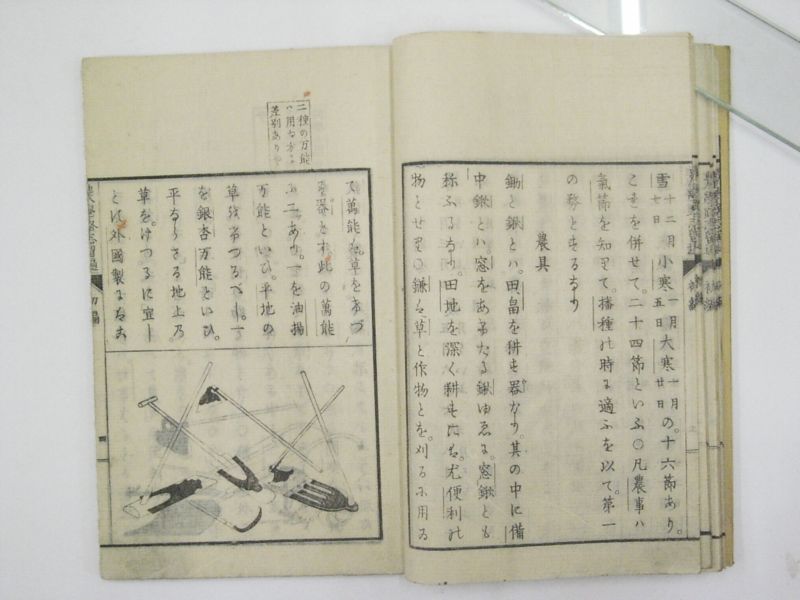 雪七日十二月小寒五日一月大寒廿日一月の。十六節あり。
こ𛀁を併せて。二十四節といふ○凡農事ハ
氣節を知りて。播種の時に適ふを以て。第一
の務とするなり
農具
鋤と鍬とハ。田畠を耕す器なり。其の中に備
中鍬とハ窓をあけたる鍬ゆゑに。窓鍬とも
称ふるなり。田地を深く耕すには。尤便利の
物とせり○鎌は草と作物とを。刈るに用ゐる
二種の万能
ハ用ゐ方に
差別あり
又萬能は。草をけづ
る器とす此の萬能
に二あり。一を油揚
万能といひ。平地の
草をけづるべし。一
を銀杏万能といひ。
平ならざる地上乃
草を。けづるに宜し
とに外國製になら
初編